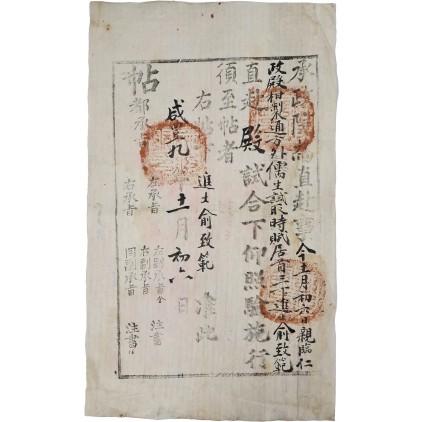 承政院爲直赴事今十一月初六日親臨仁
政殿柑製通方外儒生試取時賦居首三下進士俞致範
直赴
殿試合下仰照驗施行
須至帖者
右帖 進士俞致範 准此
咸豐九年十一月初六日
帖
都承旨
左承旨
右承旨
左副承旨
右副承旨
同副承旨
注書
注書